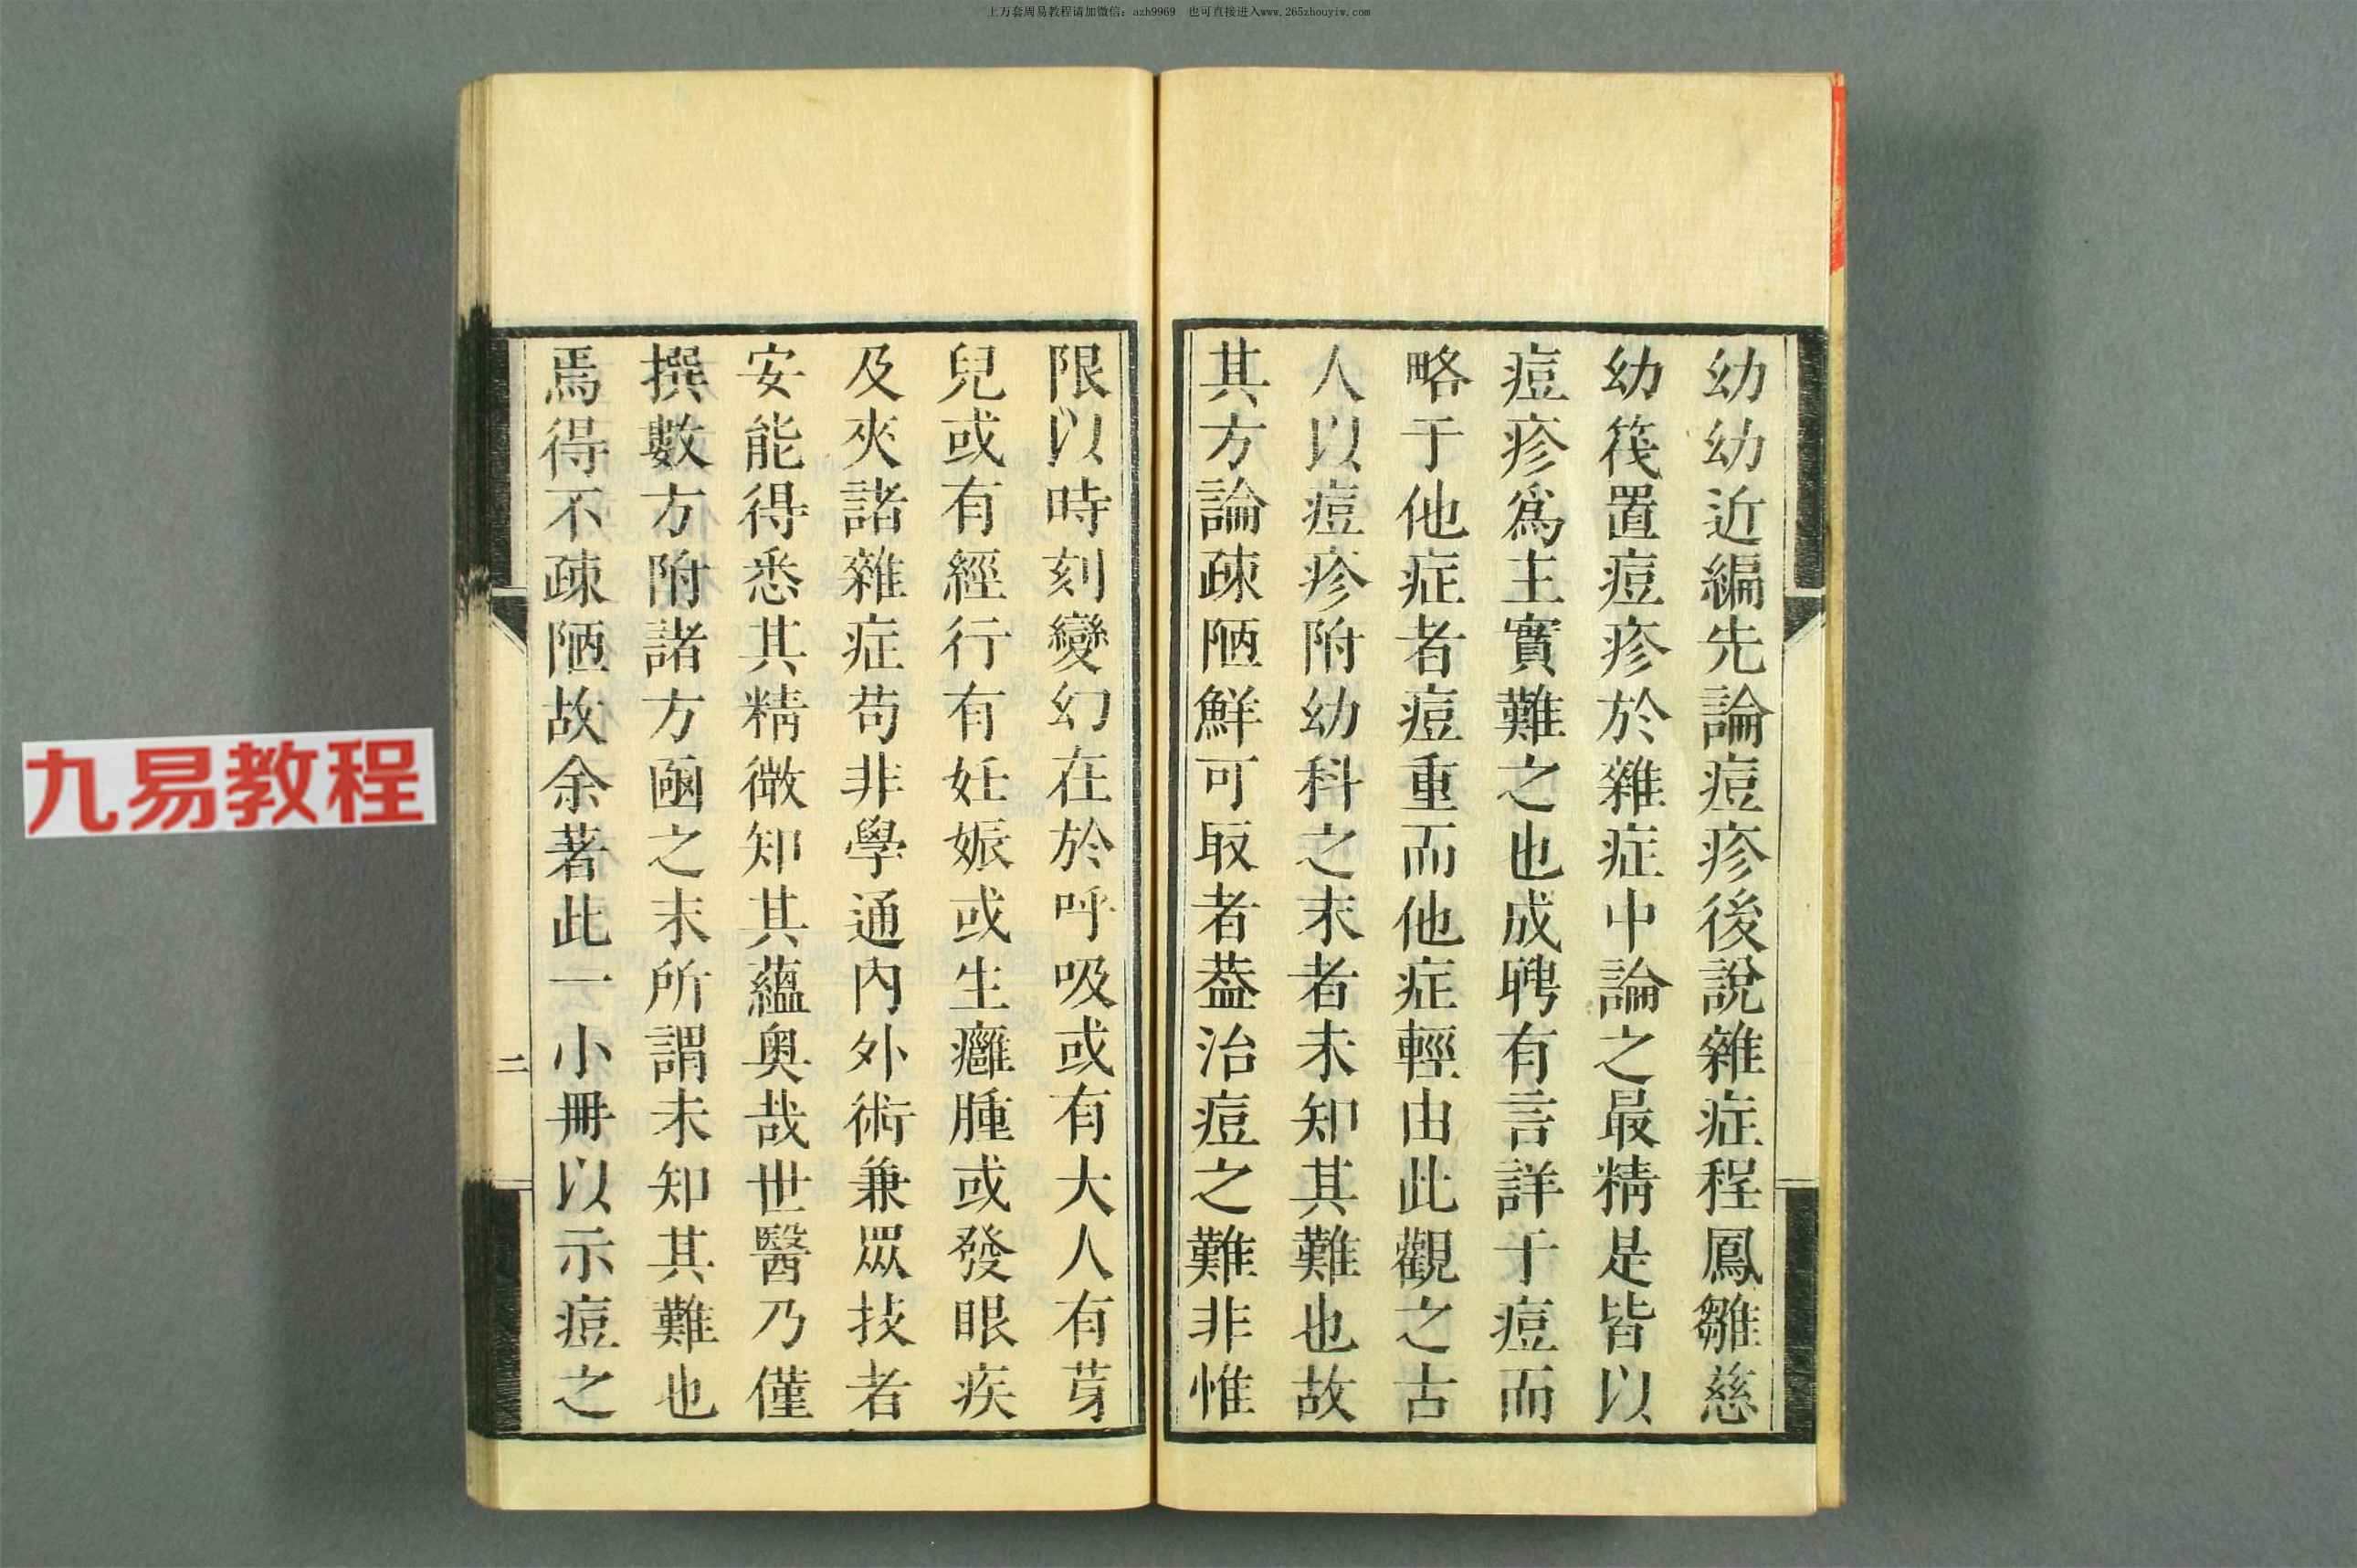 上万套周易教程请加微信：azh9969 也可直接进入www.265zhouyiw.com
幼幼近編先論痘疹後說雜症程鳳雛慈
幼筏置痘疹於雜症中論之最精是皆以
痘疹爲主實難之也成聘有言詳于痘而
略于他症者痘重而他症輕由此觀之古
人以痘疹附幼科之末者未知其難也故
其方論疎陋鮮可取者葢治痘之難非惟
限以時刻變幻在於呼吸或有大人有芽
兒或有經行有妊娠或生癰腫或發眼疾
及夾諸雜症苟非學通內外術兼眾技者
安能得悉其精微知其蘊奧哉世醫乃僅
撰數方附諸方凾之末所謂未知其難也
焉得不疎陋故余著此一小冊以示痘之
二
九易教程